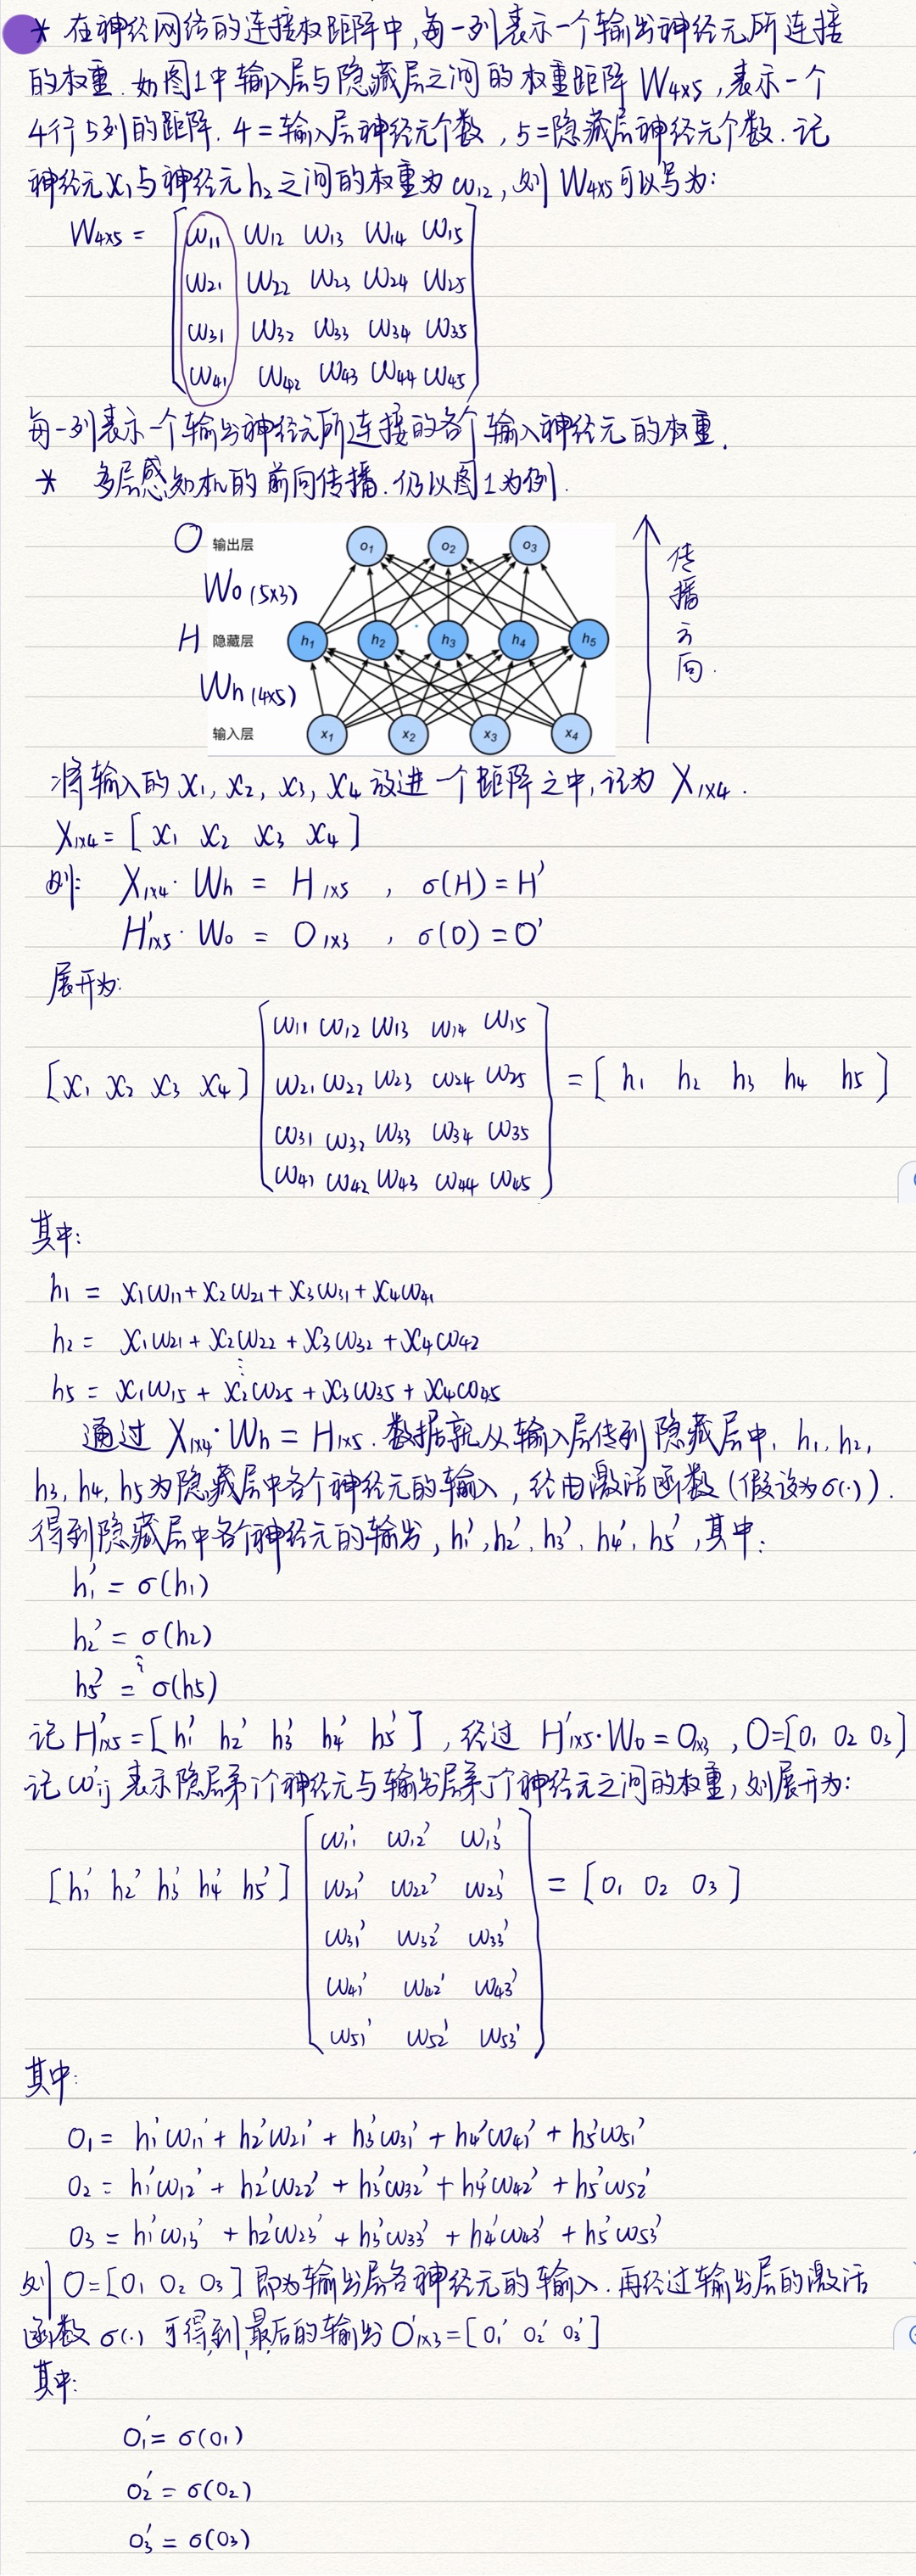 * 在神经网络的连接权距阵中,每一列表示一个输出神经元所连接
的权重.如图1中输入层与隐藏层之间的权重距阵 W4x5,表示一个
4行5列的距阵. 4=输入层神经元个数, 5=隐藏层神经元个数. 记
神经元x1与神经元h2之间的权重为ω12,则 W4x5可以写为:
W4x5 =
ω11 ω12 ω13 ω14 ω15
ω21 ω22 ω23 ω24 ω25
ω31 ω32 ω33 ω34 ω35
ω41 ω42 ω43 ω44 ω45
每一列表示一个输出神经元所连接的各个输入神经元的权重.
* 多层感知机的前向传播.仍以图1为例.
O 输出层 o1 o2 o3
Wo (5x3)
H 隐藏层 h1 h2 h3 h4 h5
Wh (4x5)
输入层 x1 x2 x3 x4
传播方向.
将输入的 x1, x2, x3, x4 放进一个距阵之中,记为 X1x4.
X1x4 = [ x1 x2 x3 x4 ]
则: X1x4 · Wh = H1x5 , σ(H) = H'
H'1x5 · Wo = O1x3 , σ(O) = O'
展开为:
ω11 ω12 ω13 ω14 ω15
[x1 x2 x3 x4] ω21 ω22 ω23 ω24 ω25 = [ h1 h2 h3 h4 h5 ]
ω31 ω32 ω33 ω34 ω35
ω41 ω42 ω43 ω44 ω45
其中:
h1 = x1ω11 + x2ω21 + x3ω31 + x4ω41
h2 = x1ω21 + x2ω22 + x3ω32 + x4ω42
⋮
h5 = x1ω15 + x2ω25 + x3ω35 + x4ω45
通过 X1x4 · Wh = H1x5. 数据就从输入层传到隐藏层中, h1, h2,
h3, h4, h5为隐藏层中各个神经元的输入,经由激活函数(假设为σ(·)).
得到隐藏层中各个神经元的输出, h1', h2', h3', h4', h5',其中:
h1' = σ(h1)
h2' = σ(h2)
⋮
h5' = σ(h5)
记 H'1x5 = [ h1' h2' h3' h4' h5' ], 经过 H'1x5 · Wo = O1x3, O=[o1 o2 o3]
记 ω'ij 表示隐层第i个神经元与输出层第j个神经元之间的权重,则展开为:
ω11' ω12' ω13'
[h1' h2' h3' h4' h5'] ω21' ω22' ω23' = [ o1 o2 o3 ]
ω31' ω32' ω33'
ω41' ω42' ω43'
ω51' ω52' ω53'
其中:
o1 = h1'ω11' + h2'ω21' + h3'ω31' + h4'ω41' + h5'ω51'
o2 = h1'ω12' + h2'ω22' + h3'ω32' + h4'ω42' + h5'ω52'
o3 = h1'ω13' + h2'ω23' + h3'ω33' + h4'ω43' + h5'ω53'
则 O = [o1 o2 o3] 即为输出层各神经元的输入.再经过输出层的激活
函数 σ(·) 可得到最后的输出O'1x3 = [ o1' o2' o3' ]
其中:
o1' = σ(o1)
o2' = σ(o2)
o3' = σ(o3)